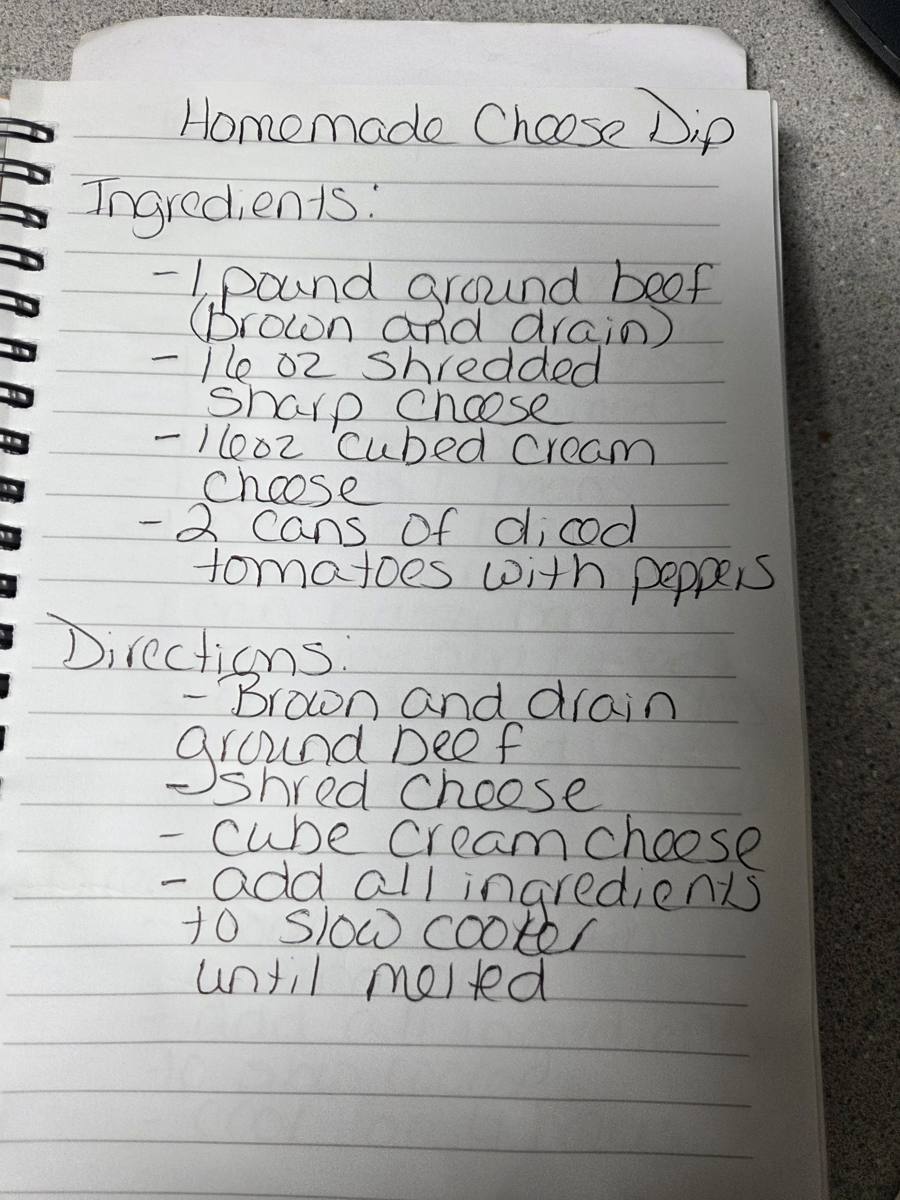 Homemade Cheese Dip
Ingredients:
- 1 pound ground beef
(brown and drain)
- 16 oz shredded
sharp cheese
- 16oz cubed cream
cheese
- 2 cans of diced
tomatoes with peppers
Directions:
- Brown and drain
ground beef
- shred cheese
- cube cream cheese
- add all ingredients
to slow cooker
until melted